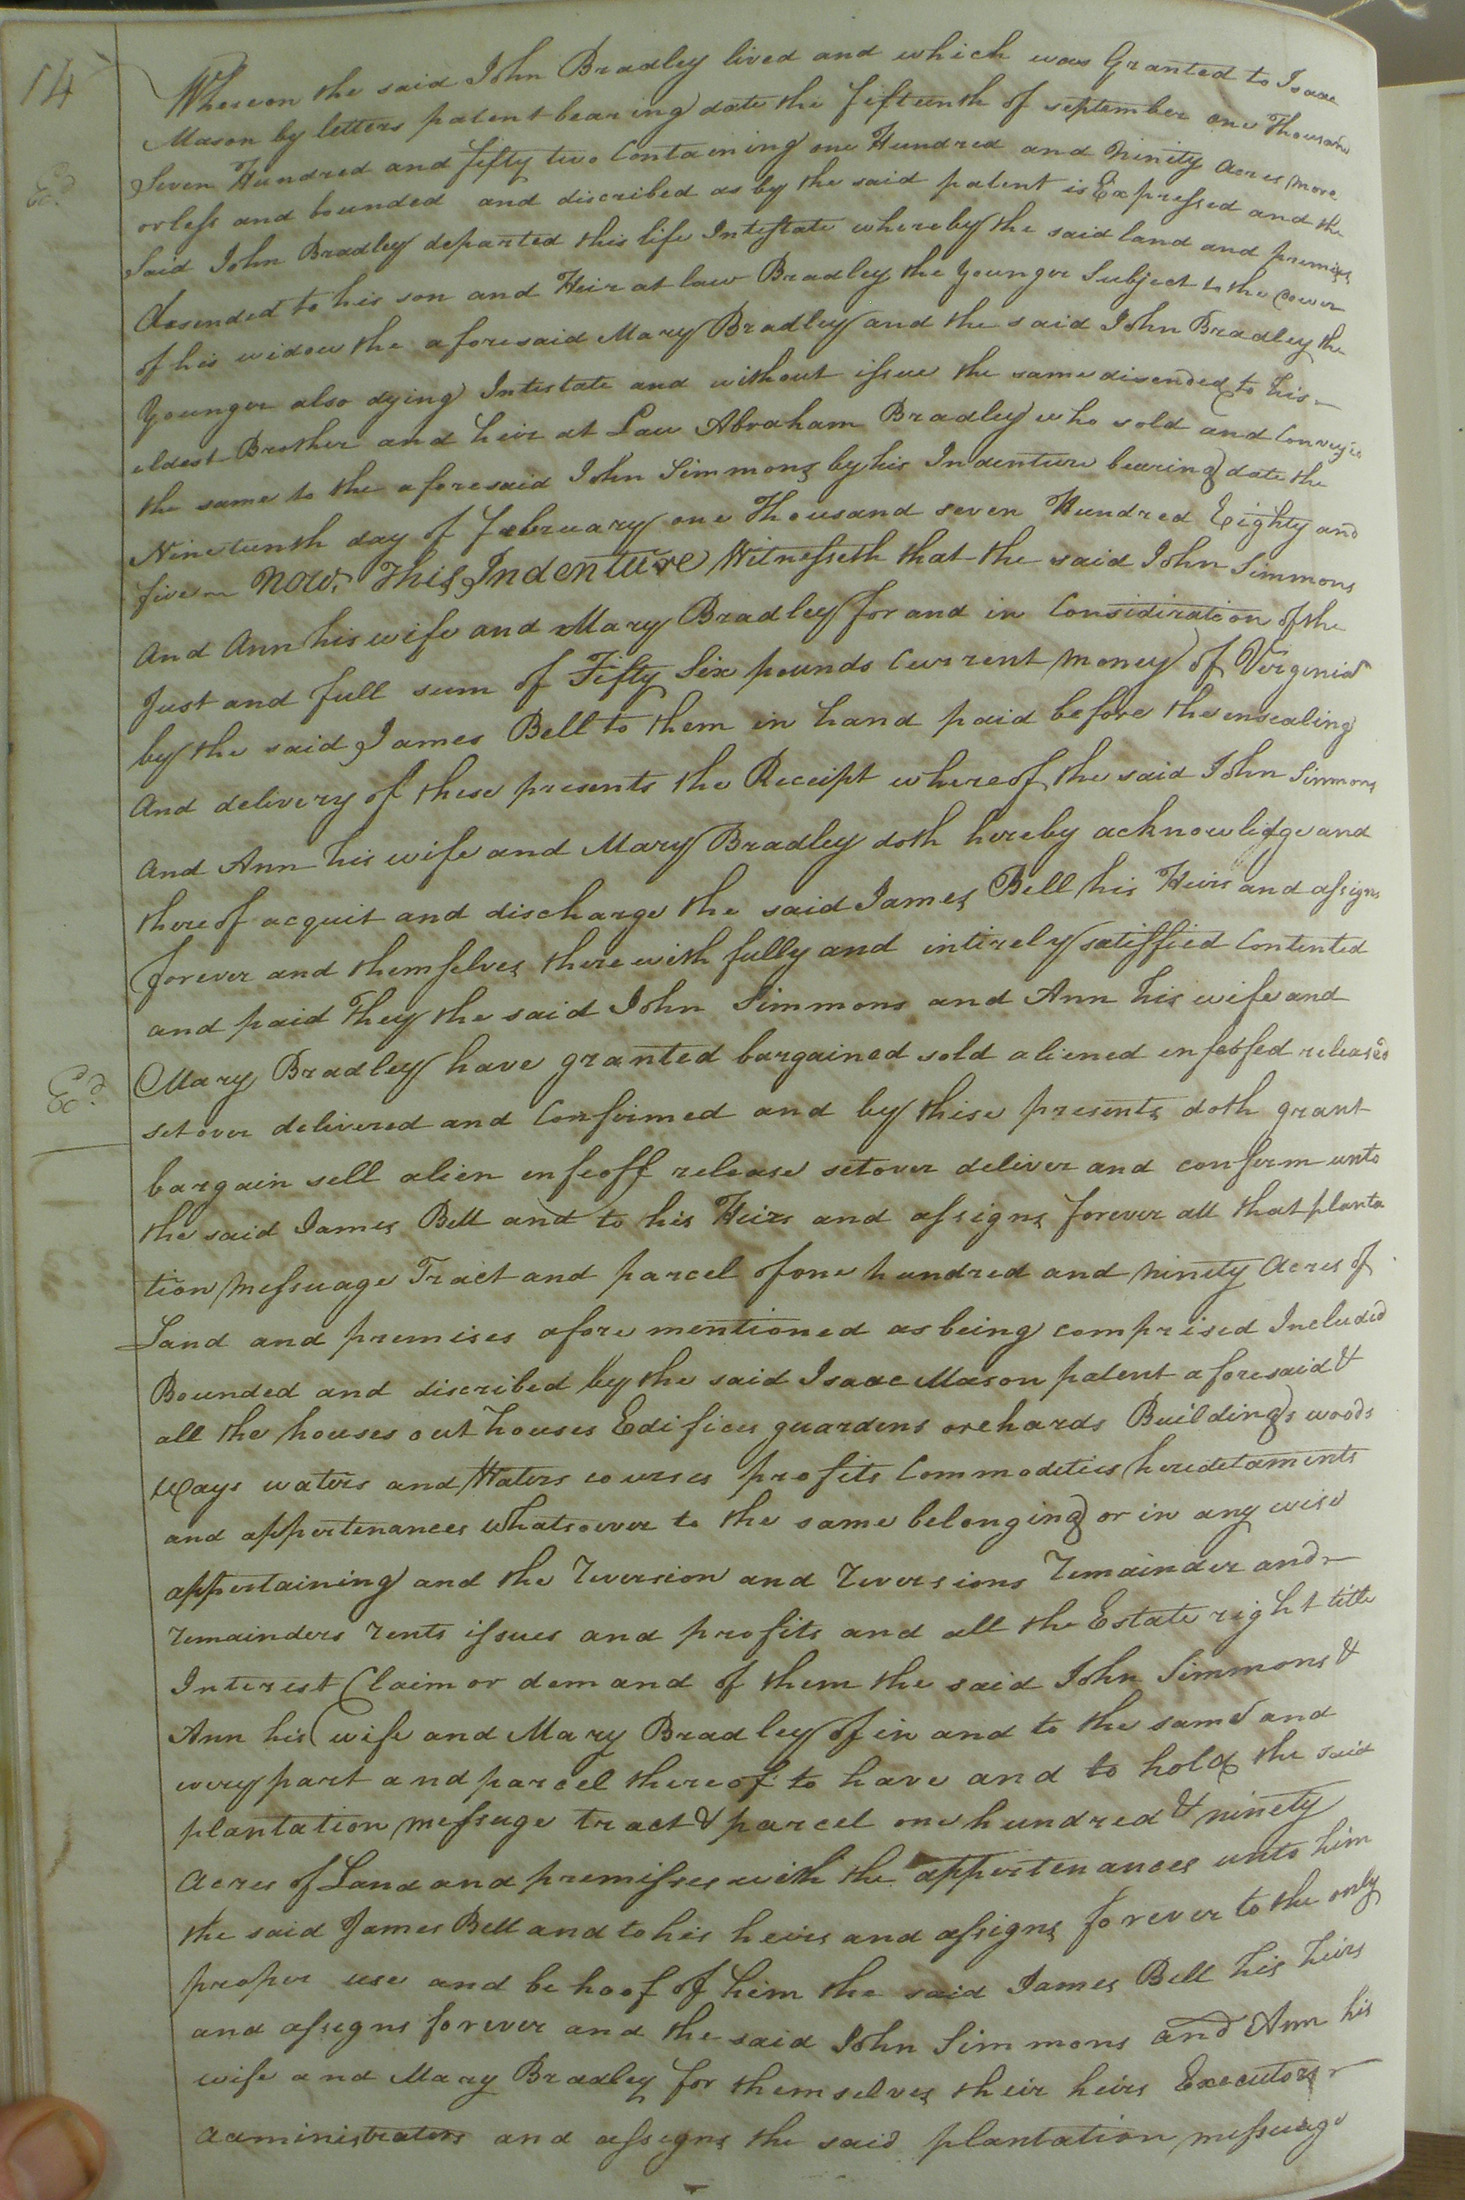 14
Whereon the said John Bradley lived and which was Granted to Isaac
Mason by letters patent bearing date the fifteenth of september one Thousand
Seven Hundred and fifty two Containing one Hundred and Ninity Acres more
or less and bounded and discribed as by the said patent is Expressed and the
Said John Bradley departed this life Intestate whereby the said land and premises
desended to his son and Heir at law Bradley the Younger Subject to the Dower
of his widow the aforesaid Mary Bradley and the said John Bradley the
Younger also dying Intestate and without issue the same disended to his
eldest Brother and heir at Law Abraham Bradley who sold and Convey'd
the same to the aforesaid John Simmons by his Indenture bearing date the
Ninetunth day of February one Thousand seven Hundred Eighty and
five Now. This Indenture Witnesseth that the said John Simmons
And Ann his wife and Mary Bradley for and in Considiration of the
Just and full sum of Fifty Six pounds Current money of Virginia
by the said James Bell to them in hand paid before the ensealing
And delivery of these presents the Receipt whereof the said John Simmons
And Ann his wife and Mary Bradley doth hereby acknowlidge and
thereof acquit and discharge the said James Bell his Heirs and assigns
forever and themselves therewith fully and intirely satiffied Contented
and paid They the said John Simmons and Ann his wife and
Ed. Mary Bradley have granted bargained sold aliened enfeoffed released
set over delivered and Confirmed and by these presents doth grant
bargain sell alien enfeoff release setover deliver and confirm unto
the said James Bell and to his Heirs and assigns forever all that planta
tion messuage Tract and parcel of one hundred and ninety Acres of
Land and premises afore mentioned as being comprised Included
Bounded and discribed by the said Isaac Mason patent aforesaid &
all the houses out houses Edifices guardens orchards Buildings woods
ways waters and Waters courses profits Commodities heredetaments
and appertenances whatsoever to the same belonging or in any wise
appertaining and the reversion and reversions remainder and
remainders rents issues and profits and all the Estate right title
Interest Claim or demand of them the said John Simmons &
Ann his wife and Mary Bradley of in and to the same and
every part and parcel thereof to have and to hold the said
plantation messuge tract & parcel one hundred & ninety
Acres of Land and premisses with the appertenances unto him
the said James Bell and to his heirs and assigns forever to the only
proper use and behoof of him the said James Bell his heirs
and assigns forever and the said John Simmons and Ann his
wife and Mary Bradley for themselves their heirs Executors
administrators and assigns the said plantation messuage